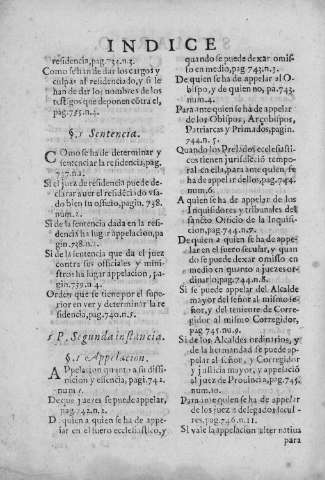 INDICE
residencia, pag. 733. n.3.
Como se han de dar los cargos y
culpas al residenciado, y si le
han de dar los nombres de los
testigos que deponen cõtra el,
pag. 735. n.4.
§. 1 Sentencia.
COmo se ha de determinar y
sentenciar la residencia, pag,
737. n.1.
Si el juez de residencia puede de-
clarar aver el residenciado vsa-
do bien su officio, pagin, 738.
num. 2.
Si de la sentencia dada en la resi-
dencia ha lugar appelacion, pa
gin. 738. n.3.
Si de la sentencia que da el juez
contra sus officiales y mini-
stros ha lugar appelacion, pa-
gin. 739. n 4.
Orden que se tiene por el supe-
rior en ver y determinar la re
sidencia, pag. 740. n.5.
5 P. Segunda instancia.
§. 1 Appelacion.
APpelacion quanto a su diffi-
nicion y essencia, pagi. 742.
num. 1.
De que juezes se puede appelar,
pag. 742. n.2.
De quien a quien se ha de appe-
lar en el fuero ecclesiastico, y
quando se puede dexar omis-
so en medio, pag. 743. n.3.
De quien se ha de appelar al O-
bispo, y de quien no, pa. 743.
num. 4.
Para ante quien se ha de appelar
de los Obispos, Arçobispos,
Patriarcas y Primados, pagin.
744. n. 5.
Quando los Prelados ecclesiasti-
cos tienen jurisdicion tempo-
ral en ella, para ante quien, se
ha de appelar dellos, pag. 744.
num, 6.
A quien se ha de appelar de los
Inquisidores y tribunales del
sancto Officio de la Inquisi-
cion, pag. 744. n.7.
De quien a quien se ha de appe-
lar en el fuero secular, y quan
do se puede dexar omisso en
medio en quanto a juezes or-
dinarios, pag. 744. n.8.
Si se puede appelar del Alcalde
mayor del señor al mismo se-
ñor, y del teniente de Corre-
gidor al mismo Corregidor,
pag 745. nu. 9.
Si de los Alcaldes ordinarios, y
de la hermandad se puede ap-
pelar al señor, y Corregidor
y justicia mayor, y appelació
al juez de Prouincia, pag. 745,
num. 10.
Para ante quien se ha de appelar
de los juezes delegados secul-
res, pag. 746. n.11.
Si vale la appelacion alternatiua
para